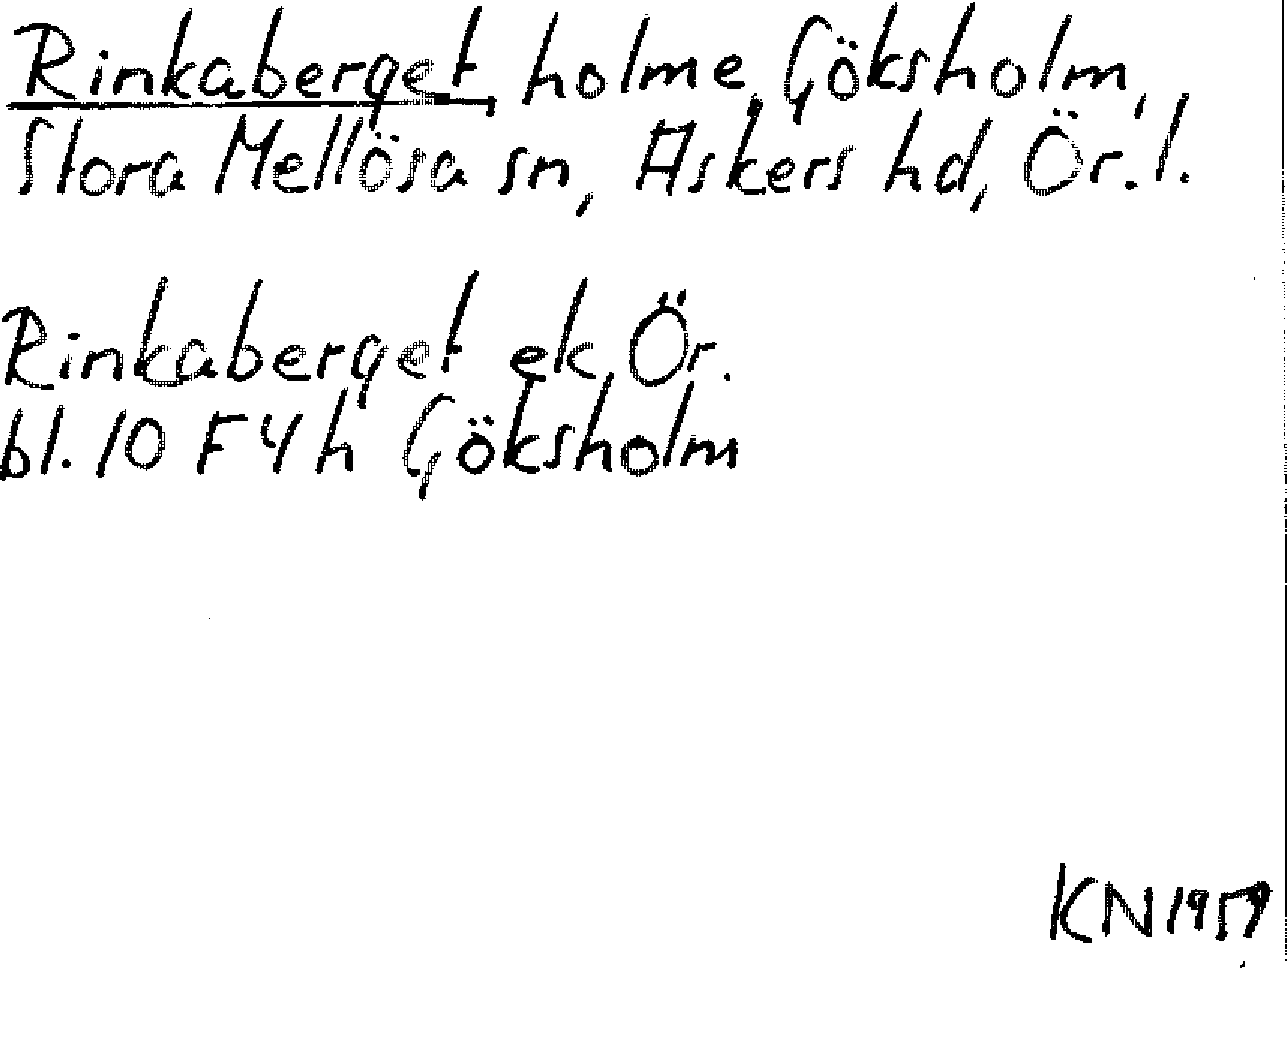 Rinkaberget, holme, Göksholm,
Stora Mellösa sn, Askers hd, Ör. l.
Rinkaberget ek. Ör.
bl. 10 F 4 h Göksholm
KN 1959